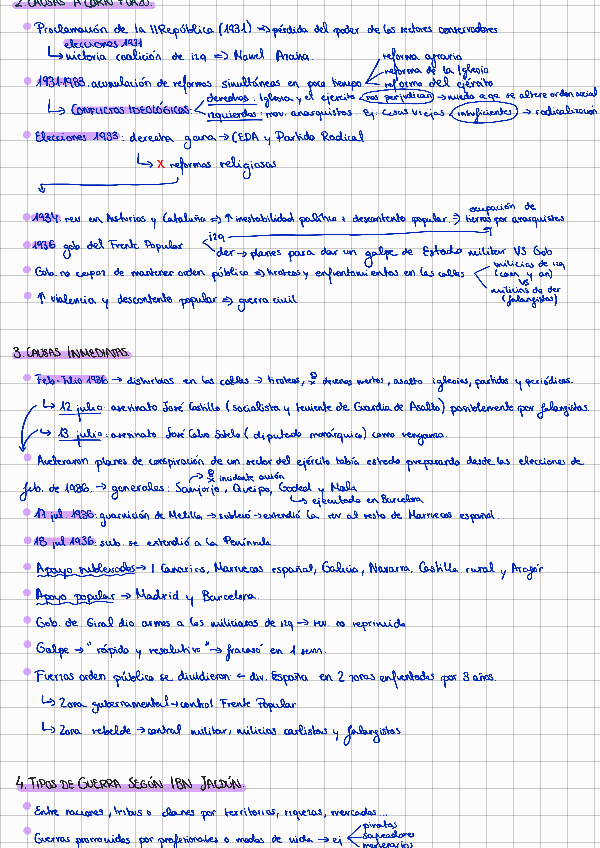 2. CAUSAS A CORTO PLAZO.
Proclamación de la IIRepública (1931) => pérdida del poder de los sectores conservadores
elecciones 1931
↳ victoria coalición de izq => Manuel Azaña.
reforma agraria
reforma de la Iglesia
1931-1933: acumulación de reformas simultáneas en poco tiempo reforma del ejército
↳ CONFLICTOS IDEOLÓGICOS derechas: Iglesia y el ejército (los perjudican) → miedo a q se altere orden social
izquierdas: mov. anarquistas Ej: Casas Viejas (insuficientes) → radicalización
Elecciones 1933: derecha gana → CEDA y Partido Radical
↳ X reformas religiosas
1934: rev en Asturias y Cataluña => ↑ inestabilidad política + descontento popular. => ocupación de tierras por anarquistas
1936 gob del Frente Popular izq
der → planes para dar un golpe de Estado militar VS Gob
Gob. no capaz de mantener orden público => tiroteos y enfrentamientos en las calles milicias de izq
(com y an)
VS
milicias de der
(falangistas)
↑ violencia y descontento popular => guerra civil
3. CAUSAS INMEDIATAS
Feb-Julio 1936 → disturbios en las calles → tiroteos, decenas muertos, asalto iglesias, partidos y periódicos.
↳ 12 julio: asesinato José Castillo (socialista y teniente de Guardia de Asalto) posiblemente por falangistas.
↳ 13 julio: asesinato José Calvo Sotelo (diputado monárquico) como venganza.
Aceleraron planes de conspiración de un sector del ejército había estado preparando desde las elecciones de
feb. de 1936. → generales: Sanjurjo, Queipo, Goded y Mola
→ incidente avión
↳ ejecutado en Barcelona
17 jul. 1936: guarnición de Melilla → sublevó → extendió la rev al resto de Marruecos español.
18 jul 1936: sub. se extendió a la Península.
Apoyo sublevados → I Canarias, Marruecos español, Galicia, Navarra, Castilla rural y Aragón
Apoyo popular → Madrid y Barcelona.
Gob. de Giral dio armas a los milicianos de izq → rev. no reprimida
Golpe → "rápido y resolutivo" → fracasó en 1 sem.
Fuerzas orden público se dividieron ← div. España en 2 zonas enfrentadas por 3 años.
↳ Zona gubernamental → control Frente Popular
↳ Zona rebelde → control militar, milicias carlistas y falangistas
4. TIPOS DE GUERRA SEGÚN IBN JALDÚN.
Entre naciones, tribus o clanes por territorios, riquezas, mercados...
Guerras promovidas por profesionales o modos de vida → ej piratas
saqueadores
mercenarios